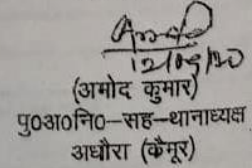 12/09/20
(अमोद कुमार)
पु०अ०नि०-सह-थानाध्यक्ष
अधौरा (कैमूर)